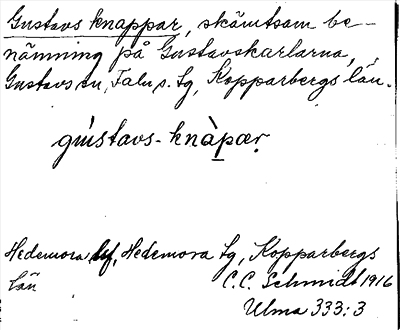 Gustavs knappar, skämtsam be-
nämning på Gustavskarlarna,
Gustavs sn, Falu s. tg, Kopparbergs län.
gùstavs-knàpær
Hedemora lsf, Hedemora tg, Kopparbergs
län
C.C. Schmidt 1916
Ulma 333:3